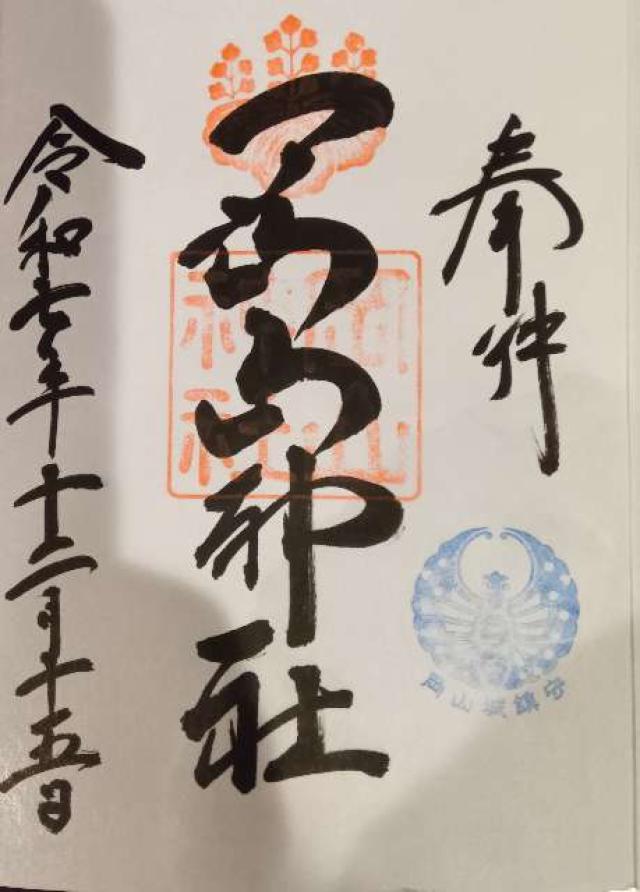 奉拝
岡山城鎮守
岡山神社
岡山神社
令和七年十二月十五日